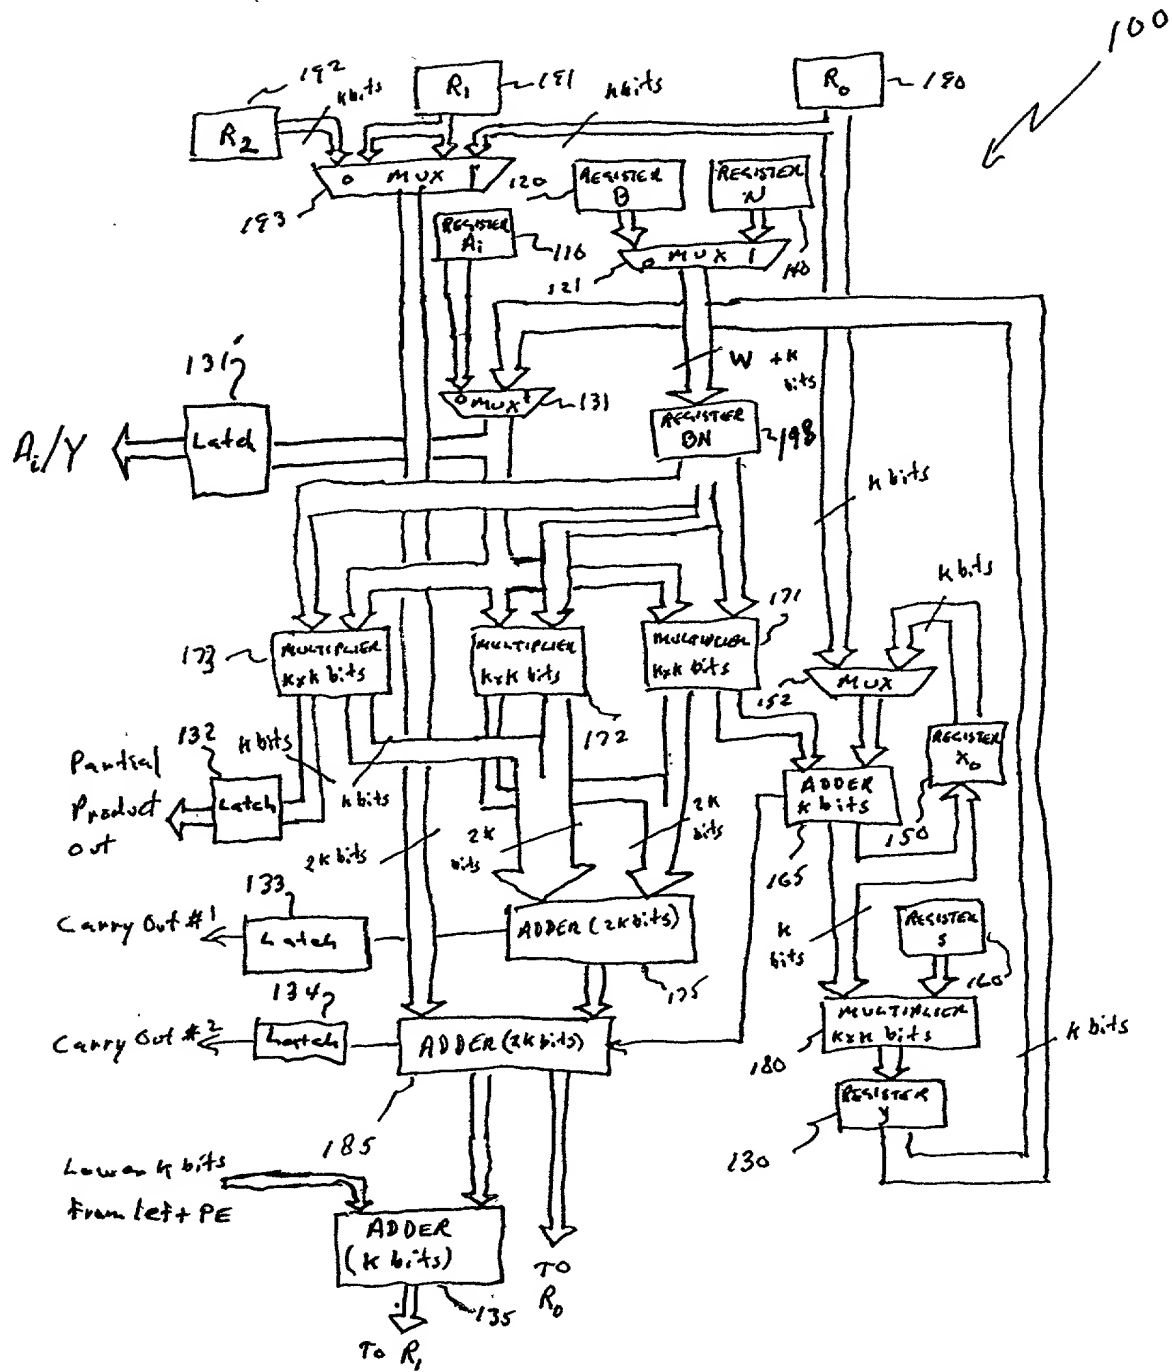 100
192
k bits
R2
R1
191
k bits
R0
190
0 MUX 1
193
120
REGISTER B
REGISTER N
140
REGISTER Ai
110
0 MUX 1
121
W + k bits
131'
Latch
Ai/Y
0 MUX 1
131
REGISTER BN
198
k bits
k bits
173
MULTIPLIER k x k bits
MULTIPLIER k x k bits
172
MULTIPLIER k x k bits
171
152
MUX
REGISTER X0
150
ADDER k bits
165
132
k bits
k bits
Latch
Partial Product out
2k bits
2k bits
2k bits
133
Carry Out #1
Latch
ADDER (2k bits)
175
k bits
REGISTER S
160
134
Carry Out #2
Latch
ADDER (2k bits)
185
MULTIPLIER k x k bits
180
k bits
REGISTER Y
130
Lower k bits
From left PE
ADDER (k bits)
135
TO R0
TO R1